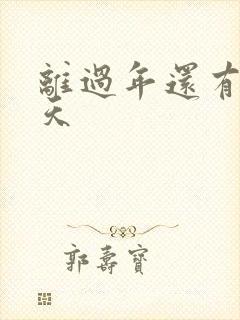 離過年還有
天
郭壽寶